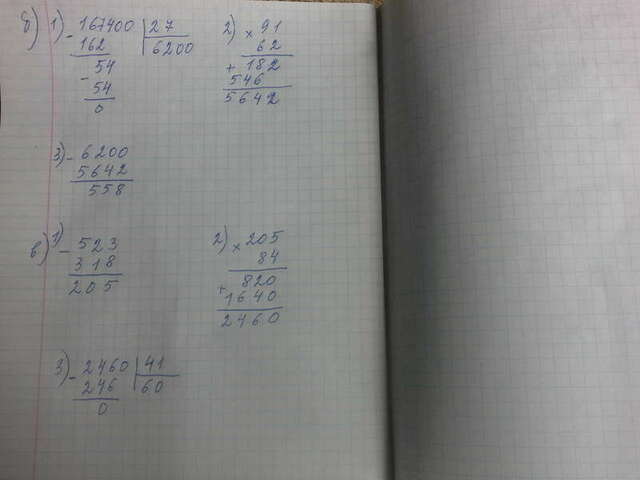 б) 1) - 167400 | 27
162 | 6200
54
- 54
0
2) × 91
62
+ 182
546
5642
3) - 6200
5642
558
в) 1) - 523
318
205
2) × 205
84
820
+ 1640
2460
3) - 2460 | 41
246 | 60
0